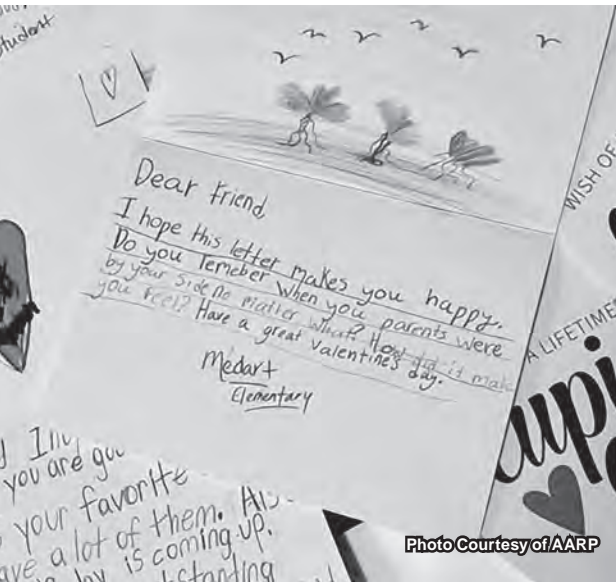 student
Dear Friend,
I hope this letter makes you happy.
Do you remeber when you parents were
by your side no matter what? How did it make
you feel? Have a great valentine's day.
Medart
Elementary
WISH OF
A LIFETIME
upi
you are
your favorite
ave a lot of them.
is coming up.
Photo Courtesy of AARP